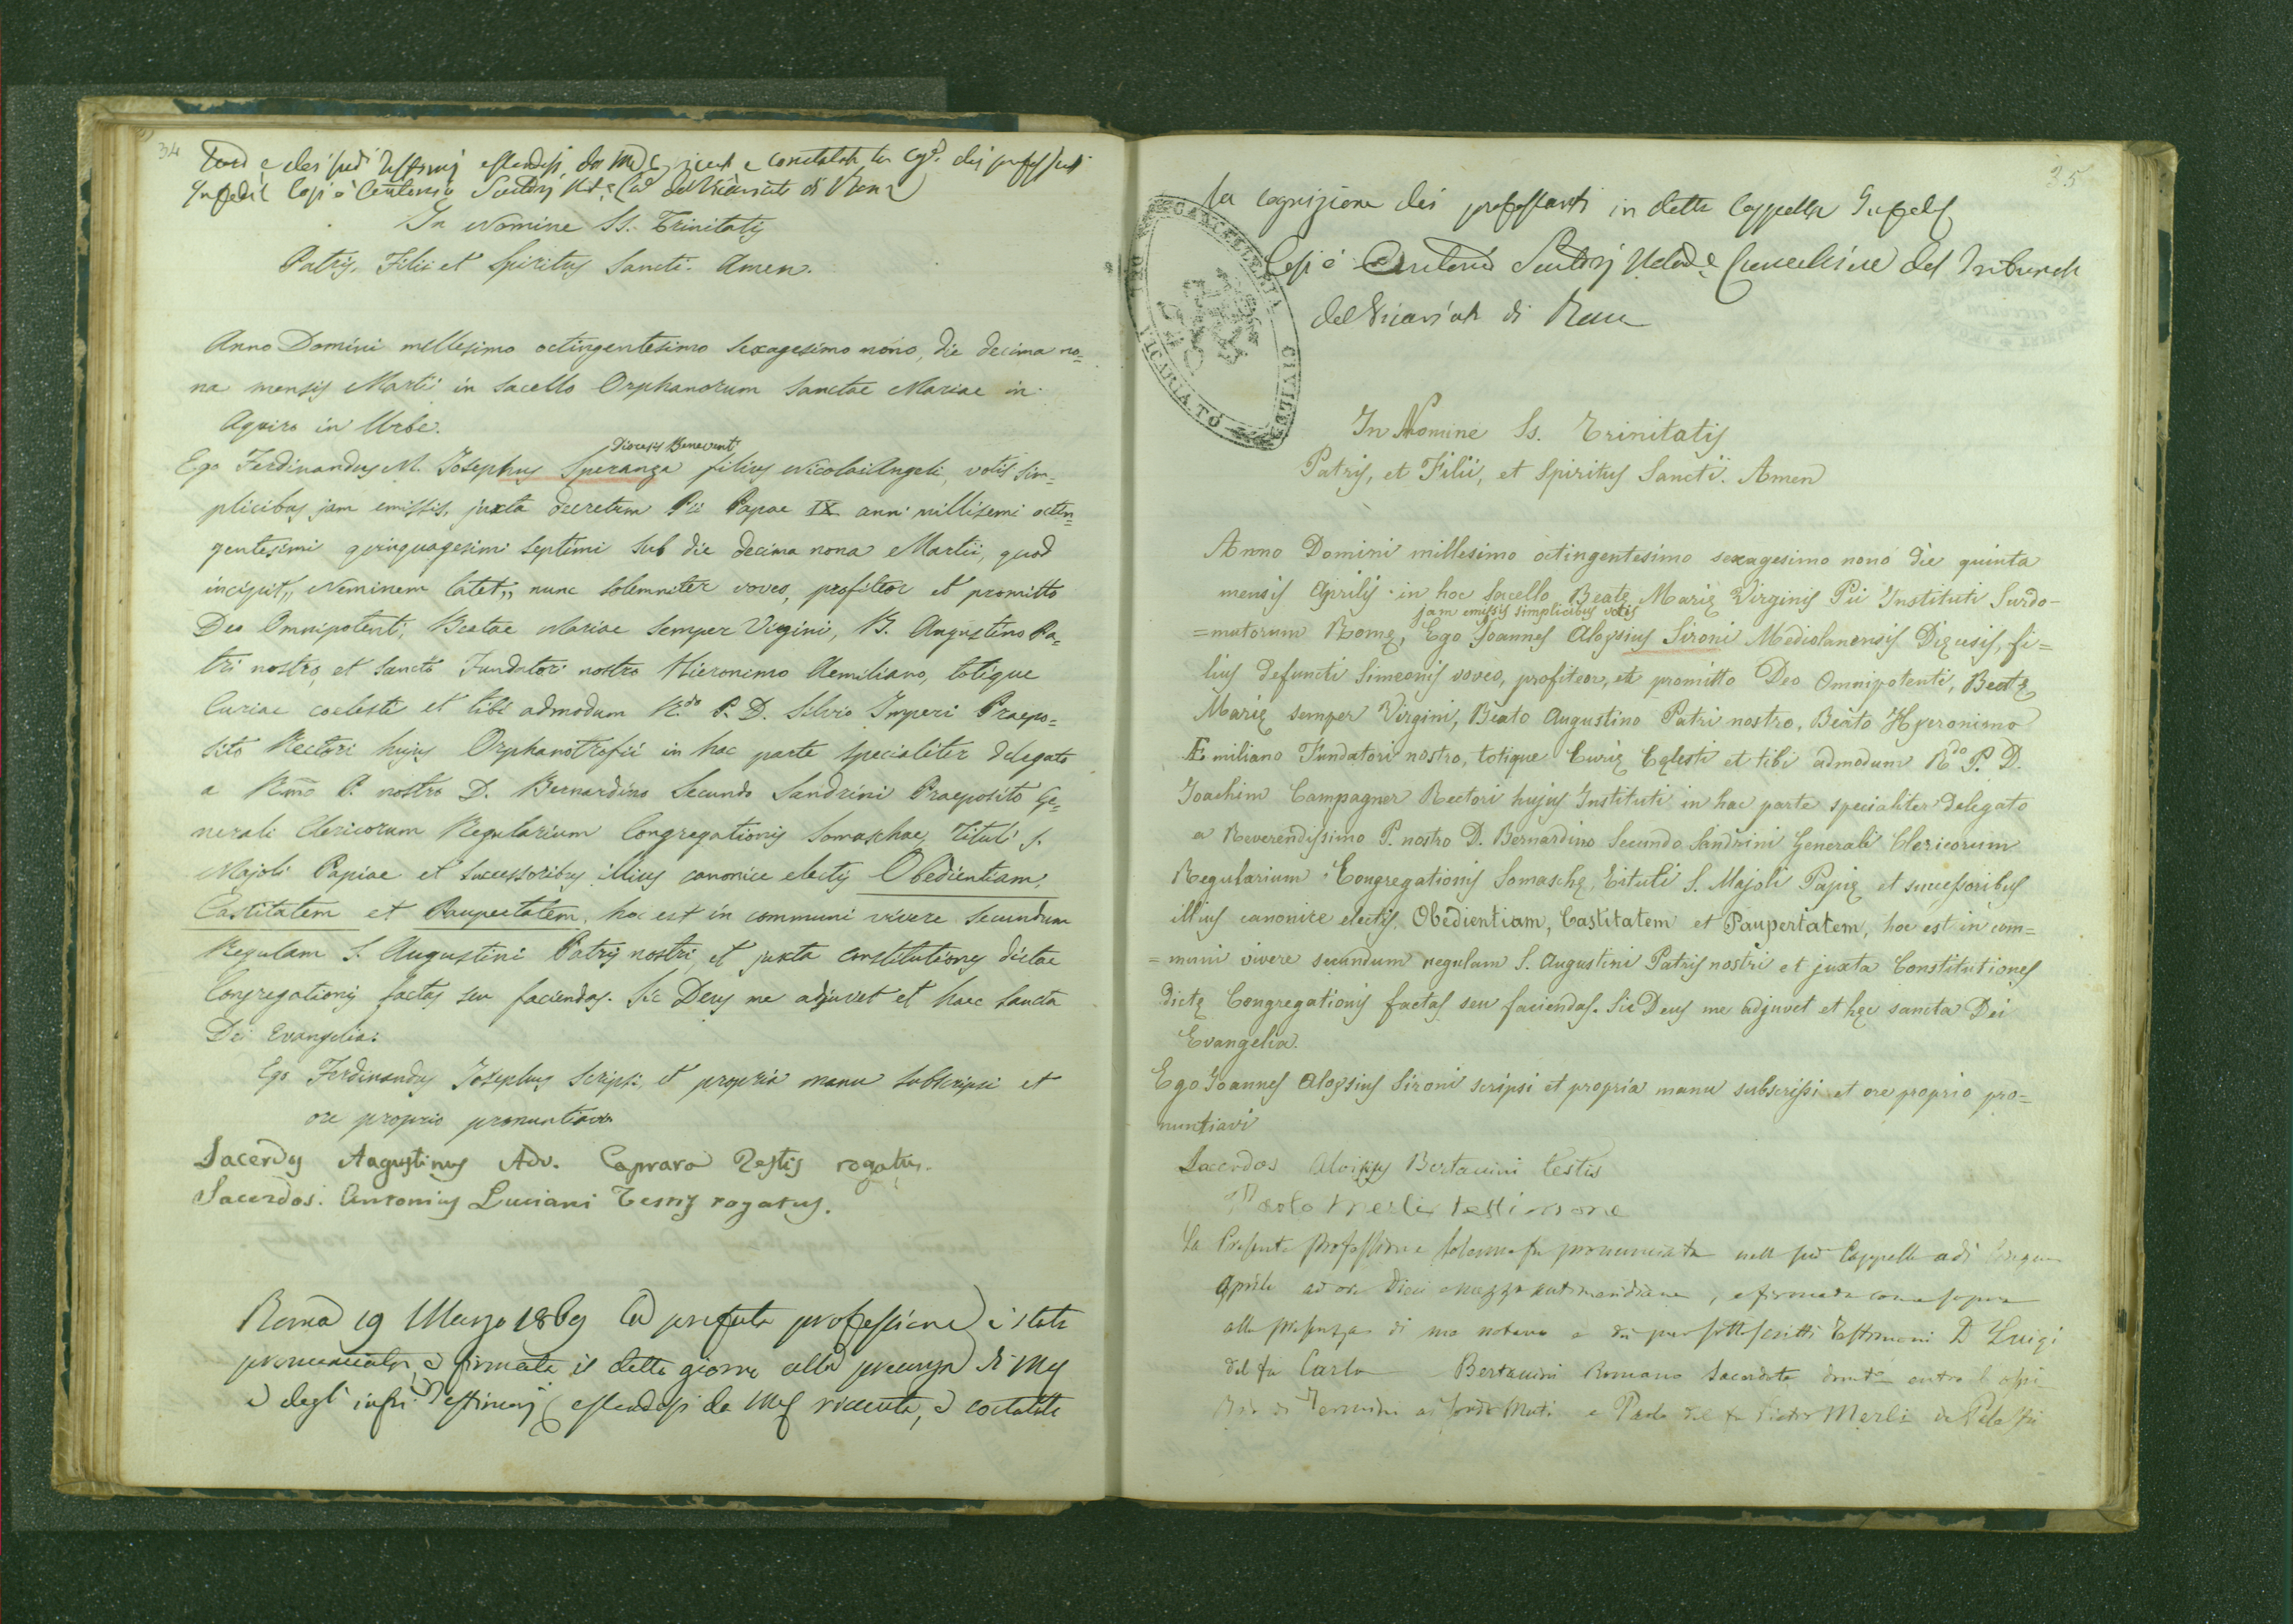 34
In Nomine SS. Trinitatis
Patris, Filii et Spiritus Sancti. Amen.
Anno Domini millesimo octingentesimo sexagesimo nono, die decima no=
na mensis Martii in Sacello Orphanorum Sanctae Mariae in
Aquiro in Urbe.
Diocesis Benevent.
Ego Ferdinandus M. Josephus Speranza filius Nicolai Angeli, votis sim=
plicibus jam emissis, juxta decretum Pii Papae IX anni millisemi octin=
gentesimi quinquagesimi septimi sub die decima nona Martii, quod
incipit „ Neminem latet „ nunc solemniter voveo, profiteor et promitto
Deo Omnipotenti, Beatae Mariae semper Virgini, B. Augustino Pa=
tri nostro, et Sancto Fundatori nostro Hieronimo Aemiliano, totique
Curiae coelesti et tibi admodum R.do P. D. Silvio Imperi Praepo=
sito Rectori hujus Orphanotrofii in hac parte specialiter delegato
a Rmo P. nostro D. Bernardino Secundo Sandrini Praeposito Ge=
nerali Clericorum Regularium Congregationis Somaschae, Tituli S.
Majoli Papiae et successoribus illius canonice electis Obedientiam,
Castitatem et Paupertatem, hoc est in communi vivere secundum
Regulam S. Augustini Patris nostri, et juxta constitutiones dictae
Congregationis factas seu faciendas. Sic Deus me adjuvet et haec Sancta
Dei Evangelia.
Ego Ferdinandus Josephus scripsi, et propria manu subscripsi et
ore proprio pronuntiavi
Sacerdos Augustinus Adv. Caprara Testis rogatus.
Sacerdos Antonius Luciani Testis rogatus.
Roma 19 Marzo 1869 La prefata professione è stata
pronunciata, e firmata il detto giorno alla presenza di me
e degli infri Testimonj essendosi da me ricevuta, e constatata
25
la cognizione dei professanti in detta Cappella In fede
del Tribunale
del Vicariato di Roma
CANCELLERIA CIVILE
VICARIATO
In Nomine Ss. Trinitatis
Patris, et Filii, et Spiritus Sancti. Amen
Anno Domini millesimo octingentesimo sexagesimo nono die quinta
mensis Aprilis in hoc Sacello Beatę Marię Virginis Pii Instituti Surdo-
jam emissis simplicibus votis
=mutorum Romę, Ego Joannes Aloysius Sironi Mediolanensis Dięcesis, fi=
lius defuncti Simeonis voveo, profiteor, et promitto Deo Omnipotenti, Beatę
Marię semper Virgini, Beato Augustino Patri nostro, Beato Hyeronimo
Æmiliano Fundatori nostro, totique Curię Cęlesti et tibi admodum R.do P. D.
Joachim Campagner Rectori hujus Instituti in hac parte specialiter delegato
a Reverendissimo P. nostro D. Bernardino Secundo Sandrini Generali Clericorum
Regularium Congregationis Somaschę, Tituli S. Majoli Papię et successoribus
illius canonice electis, Obedientiam, Castitatem et Paupertatem, hoc est in com=
=muni vivere secundum regulam S. Augustini Patris nostri et juxta Constitutiones
dictę Congregationis factas seu faciendas. Sic Deus me adjuvet et hęc sancta Dei
Evangelia.
Ego Joannes Aloysius Sironi scripsi et propria manu subscripsi et ore proprio pro=
nuntiavi
Sacerdos Aloisys Bertanini testis
Paolo Merli testimone
La Presente professione solenne fu pronunciata nella sud Cappella adi Cinque
Aprile ad ore dieci e mezza antimeridiane, e firmata come sopra
alla presenza di me notaro e dei pur sottoscritti Testimoni D Luigi
del fu Carlo Bertanini Romano Sacerdote
Paolo del fu Merli